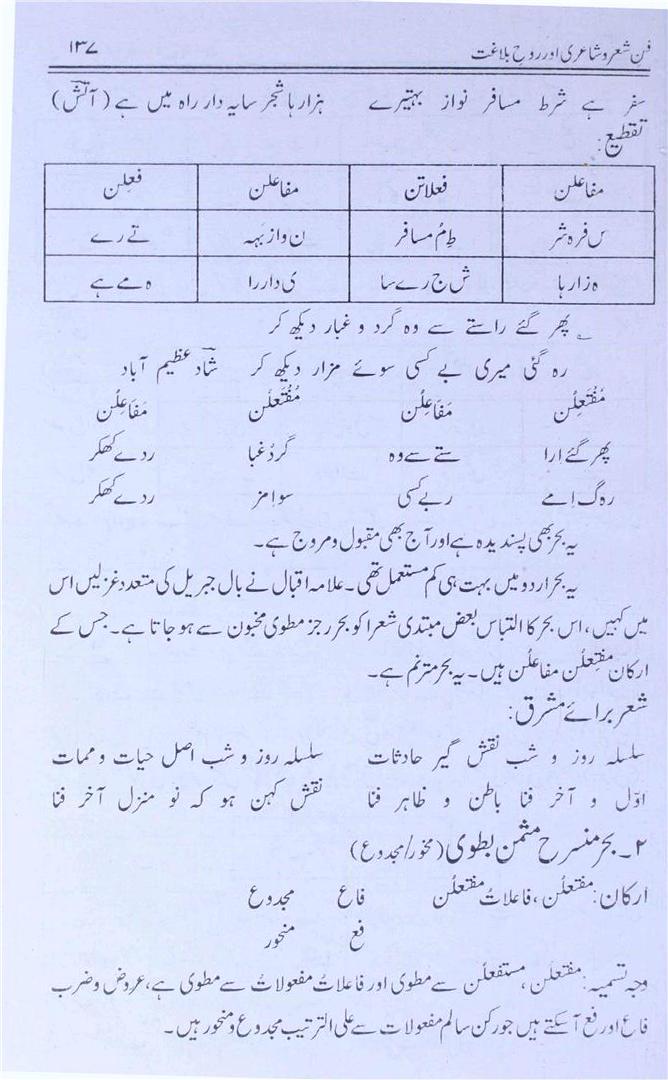 فن شعر و شاعری اور روحِ بلاغت ۱۳۷
سفر ہے شرط مسافر نواز بہتیرے ہزارہا شجر سایہ دار راہ میں ہے (آتش)
تقطیع:
مفاعلن فعلاتن مفاعلن فعِلن
س فر ہ شر طِ مُ مسافر ن واز بہہ تے رے
ہ زار ہا ش ج رے سا ی دار را ہ مے ہے
پھر گئے راستے سے وہ گرد و غبار دیکھ کر
رہ گئی میری بے کسی سوئے مزار دیکھ کر شاد عظیم آباد
مُفْتَعِلُن مَفَاعِلُن مُفْتَعِلُن مَفَاعِلُن
پھر گئے ارا ستے سے وہ گردُ غبا ر دے کھکر
رہ گ اِ مے ر بے کسی سواِ مز ر دے کھکر
یہ بحر بھی پسندیدہ ہے اور آج بھی مقبول و مروج ہے۔
یہ بحر اردو میں بہت ہی کم مستعمل تھی۔ علامہ اقبال نے بال جبریل کی متعدد غزلیں اس
میں کہیں، اس بحر کا التباس بعض مبتدی شعرا کو بحر رجز مطوی مخبون سے ہو جاتا ہے۔ جس کے
ارکان مفتعِلُن مفاعلُن ہیں۔ یہ بحر مترنم ہے۔
شعر برائے مشرق:
سلسلہ روز و شب نقش گیر حادثات سلسلہ روز و شب اصل حیات و ممات
اوّل و آخر فنا باطن و ظاہر فنا نقش کہن ہو کہ نو منزل آخر فنا
۲۔ بحر منسرح مثمن بطوی (مخور/مجدوع)
ارکان: مفتعلُن، فاعلاتُ مفتعلُن فاع مجدوع
فع منحور
وجہ تسمیہ: مفتعلُن، مستفعلُن سے مطوی اور فاعلاتُ مفعولاتُ سے مطوی ہے، عروض و ضرب
فاع اور فع آسکتے ہیں جو رکن سالم مفعولات سے علی الترتیب مجدوع و منحور ہیں۔